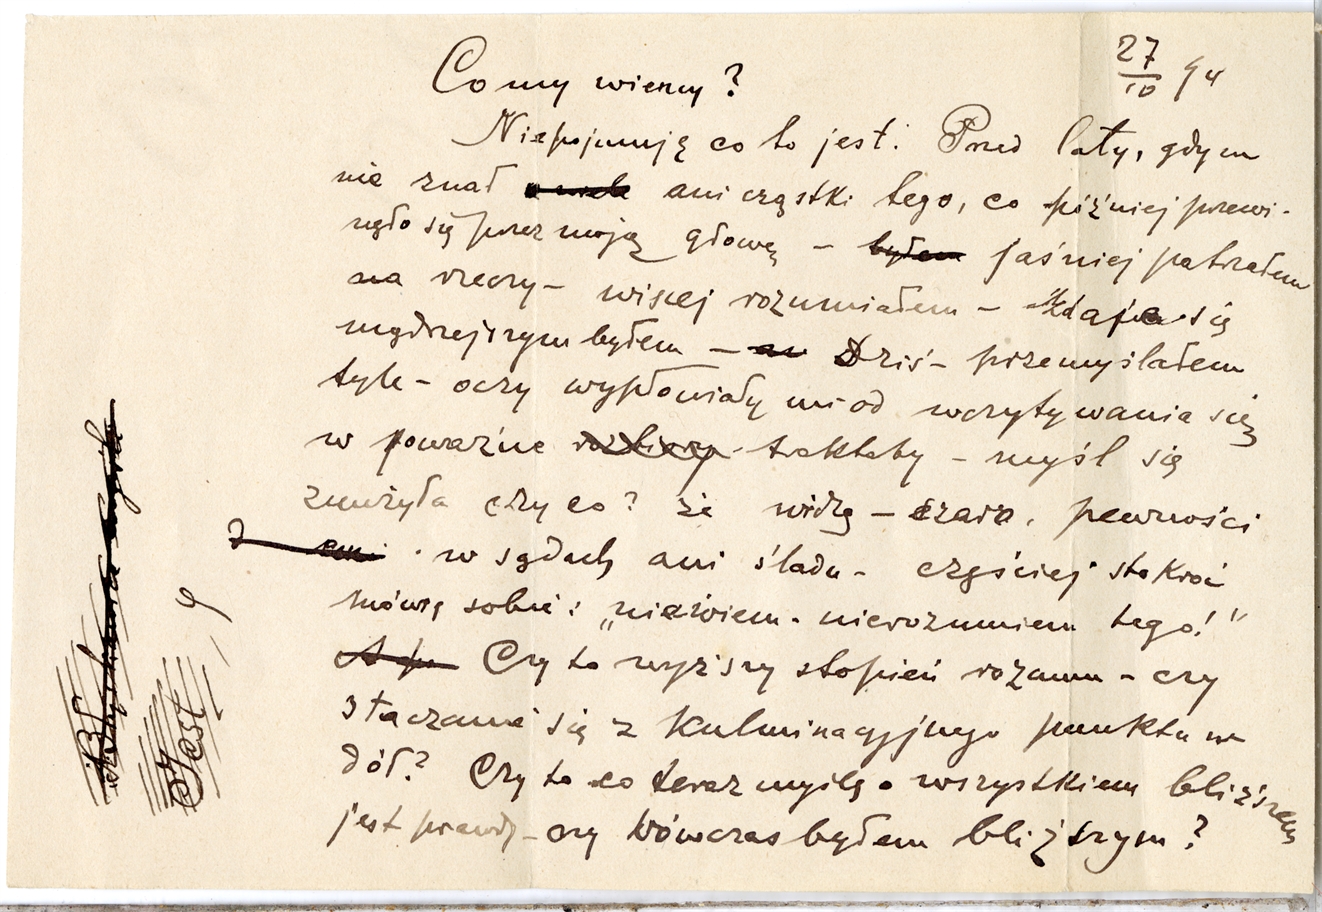 Co my wiemy?
27/10 94
Niepojmuję co to jest: Przed laty, gdym
nie znał ani cząstki tego, co później przewi-
nęło się przez moją głowę – byłem jaśniej patrzałem
na rzeczy – więcej rozumiałem – Zdaje się
mądrzejszym byłem – Dziś – przemyślałem
tyle – oczy wypłowiały mi od wczytywania się
w poważne rozbiory traktaty – myśl się
zużyła czy co? że widzę – szaro, pewności
w sądach ani śladu – częściej stokroć
mówię sobie: „niewiem – nierozumiem tego!"
Czy to wyższy stopień rozumu – czy
staczanie się z kulminacyjnego punktu w
dół? Czy to co teraz myślę o wszystkiem bliższem
jest prawdy – czy wówczas byłem bliższym?
Jest